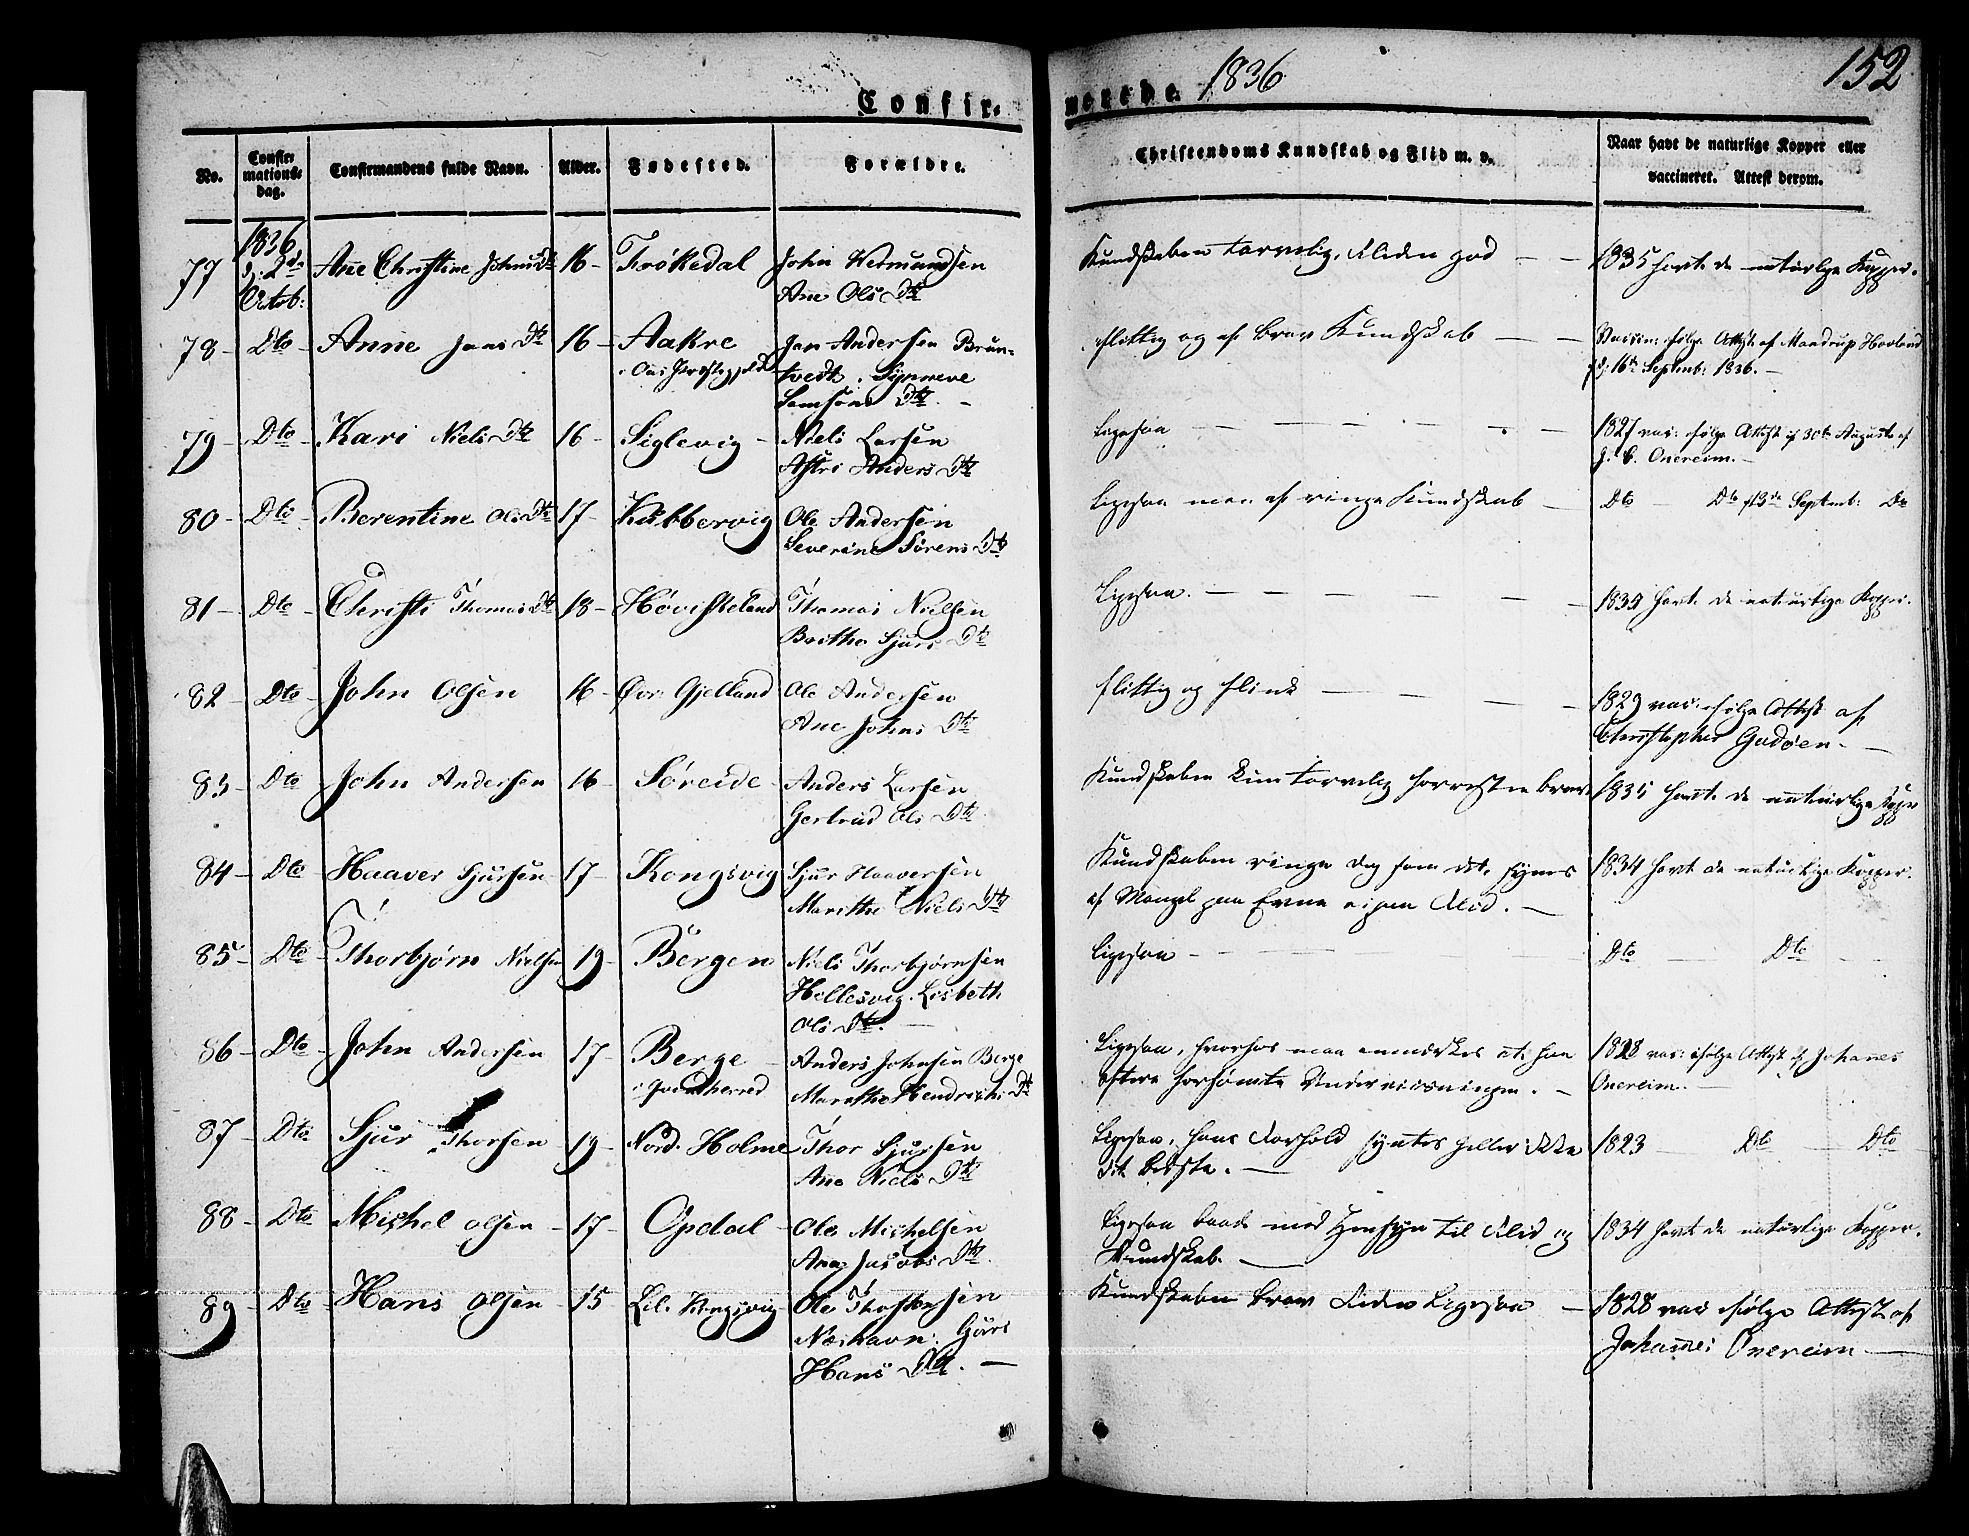 Confir-
merede. 1836
152
No.
Confir-
mations-
dag.
Confirmandens fulde Navn.
Alder.
Fødested.
Forældre.
Christendoms Kundskab og Flid m. v.
Naar havt de naturlige Kopper eller
vaccineret. Attest derom.
77 1836 d. 2de Octob: Ane Christine Johns Dtr 16 - Frøkedal John Wermundsen
Ane Ols Dtr
Kundskaben tarvelig, Fliden god — — 1835 havt de naturlige Kopper.
78 - Dto - Anne Jans Dtr 16 - Aakre Jan Andersen Brun-
tvedt. Synneve
Samsons Dtr. -
flittig og af brav Kundskab — — Vaccin: ifølge Attest af Mandrup Hovland
d: 16de Septemb: 1836. —
79 - Dto - Kari Niels Dtr 16 - Siglevig - Niels Larsen
Astri Anders Dtr
Ligesaa — — — — — 1827 vac: ifølge Attest af 30te Augusti af
J. C. Onereim. —
80 - Dto - Berentine Ols Dtr 17 - Kubbervig Ole Andersen
Severine Sørens Dtr
Ligesaa men af ringe Kundskab — Dto — Dto af 3de Septemb: Dto
81 - Dto - Christi Thomas Dtr 18 - Høviskeland Thomas Nielsen
Brithe Sjurs Dtr
Ligesaa. — — — — — 1835 havt de naturlige Kopper.
82 - Dto - John Olsen 16 - Øvr. Gjelland Ole Andersen
Ane Johns Dtr
flittig og flink — — — — 1829 vac: ifølge Attest af
Christopher Godøen. —
83 - Dto John Andersen 16 - Søreide - Anders Larsen
Gertrud Ols Dtr.
Kundskaben kun tarvelig forresten brav 1835 havt de naturlige Kopper
84 - Dto - Haaver Sjursen 17 - Kongsvig Sjur Haaversen
Marithe Niels Dtr
Kundskaben ringe dog som det synes
af Mangel paa Evne ei paa Flid. —
1834 havt de naturlige Kopper.
85 - Dto - Thorbjørn Nielsen 19 - Bergen Niels Thorbjørnsen
Hellesvig. Lisbeth
Ols Dtr. —
Ligesaa - — — — Dto — Dto —
86 - Dto - John Andersen 17 - Berge
i Qvindherred
Anders Johnsen Berge
Marethe Hendrichs Dtr
Ligesaa, hvorhos maa anmærkes at han
oftere forsømte Underviisningen. —
1828 vac: ifølge Attest af Johanes
Onereim.
87 - Dto - Sjur Thorsen 19 - Nord. Holme Thor Sjursen
Ane Niels Dtr
Ligesaa, hans Forhold syntes heller ikke
det bedste. —
1823 — Dto — Dto
88 - Dto - Michel Olsen - 17 - Opdal - Ole Michelsen
Ane Jacobs Dtr.
Ligesaa baade med Hensyn til Flid og
Kundskab. —
1834 havt de naturlige Kopper.
89 - Dto - Hans Olsen - 15 Lil. Kongsvig Ole Thostensen
Næshavn. Gjøri
Hans Dtr. —
Kundskaben brav Fliden Ligesaa — 1828 vac ifølge Attest af
Johannes Onereim —